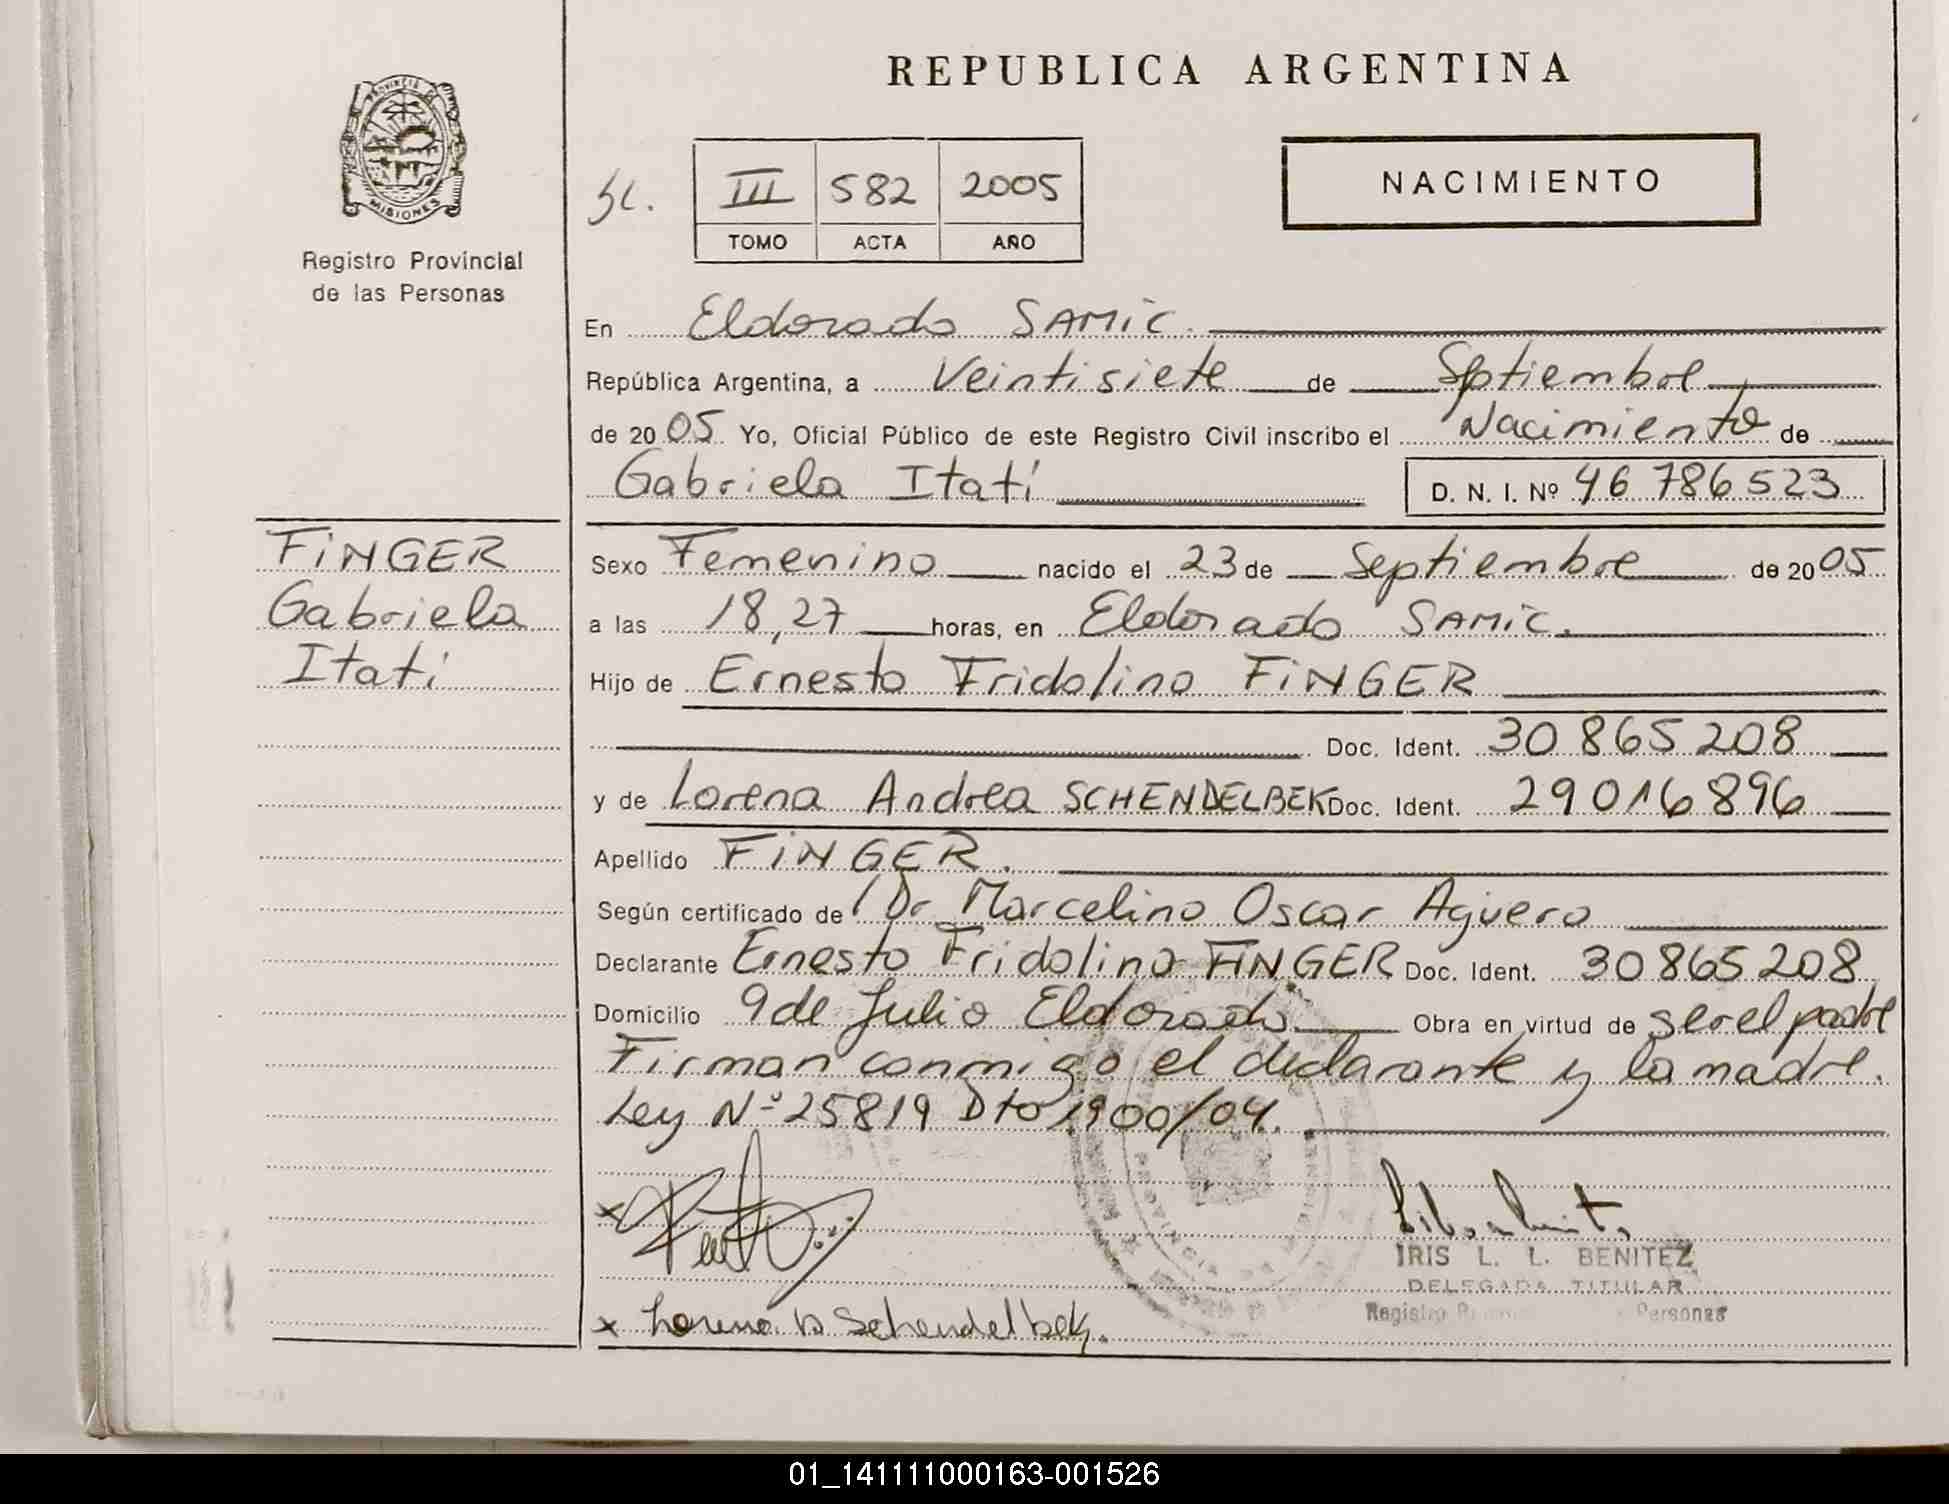 REPUBLICA ARGENTINA
PROVINCIA DE
MISIONES
Registro Provincial
de las Personas
III 582 2005
TOMO ACTA AÑO
NACIMIENTO
En Eldorado SAMIC.
República Argentina, a Veintisiete de Septiembre
de 2005 Yo, Oficial Público de este Registro Civil inscribo el Nacimiento de
Gabriela Itatí D. N. I. Nº 46 786 523
FINGER
Gabriela
Itatí
Sexo Femenino nacido el 23 de Septiembre de 2005
a las 18,27 horas, en Eldorado SAMIC.
Hijo de Ernesto Fridolino FINGER
Doc. Ident. 30 865 208
y de Lorena Andrea SCHENDELBEK Doc. Ident. 29 016 896
Apellido FINGER.
Según certificado de Dr Marcelino Oscar Aguero
Declarante Ernesto Fridolino FINGER Doc. Ident. 30 865 208
Domicilio 9 de Julio Eldorado. Obra en virtud de ser el padre
Firman conmigo el declarante y la madre.
Ley Nº 25819 Dto 1900/04.
PROVINCIA DE MISIONES
IRIS L. L. BENITEZ
DELEGADA TITULAR
Registro Personas
x Lorena Schendelbek.
01_141111000163-001526